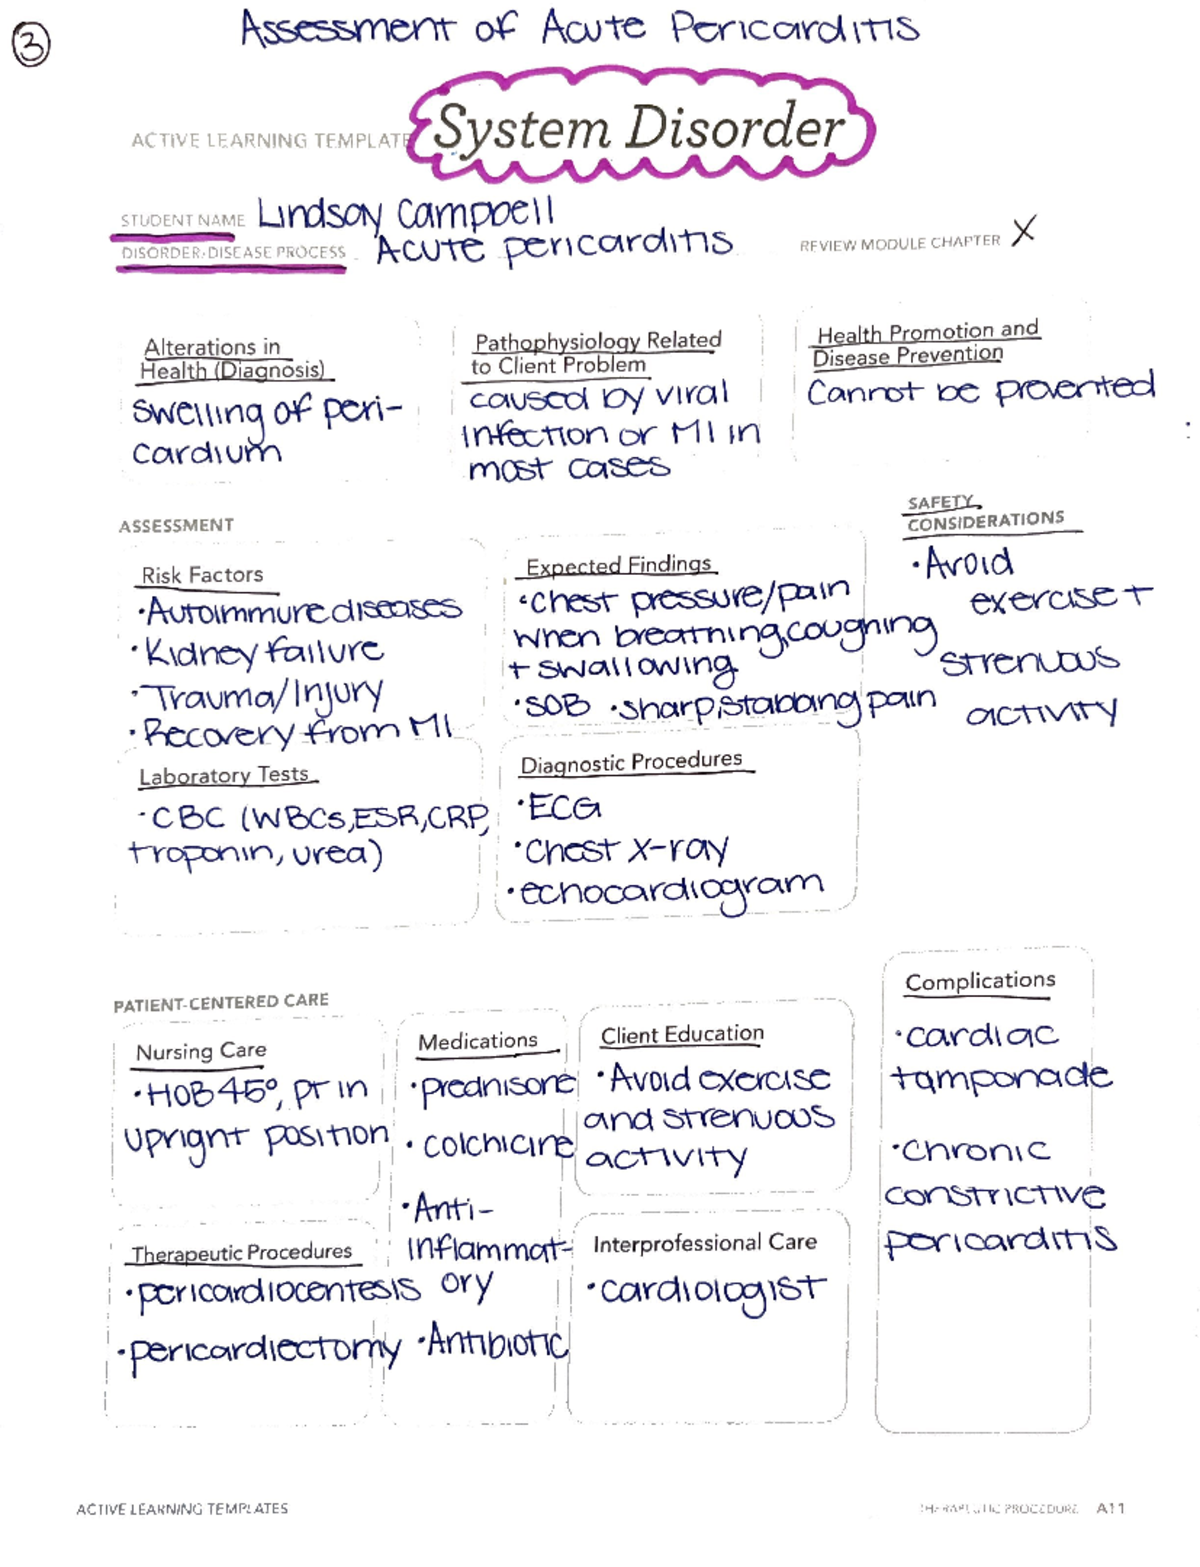 3
Assessment of Acute Pericarditis
ACTIVE LEARNING TEMPLATE
System Disorder
STUDENT NAME Lindsay Campbell
DISORDER/DISEASE PROCESS Acute pericarditis
REVIEW MODULE CHAPTER X
Alterations in
Health (Diagnosis)
swelling of peri-
cardium
Pathophysiology Related
to Client Problem
caused by viral
infection or MI in
most cases
Health Promotion and
Disease Prevention
Cannot be prevented
ASSESSMENT
SAFETY
CONSIDERATIONS
• Avoid
exercise +
strenuous
activity
Risk Factors
• Autoimmune diseases
• Kidney failure
• Trauma/Injury
• Recovery from MI
Expected Findings
• chest pressure/pain
when breathing, coughing
+ swallowing
• SOB • sharp, stabbing pain
Laboratory Tests
• CBC (WBCs, ESR, CRP,
troponin, urea)
Diagnostic Procedures
• ECG
• Chest x-ray
• echocardiogram
PATIENT-CENTERED CARE
Nursing Care
• HOB 45°, pt in
upright position
Medications
• prednisone
• colchicine
• Anti-
inflammat-
ory
• Antibiotic
Client Education
• Avoid exercise
and strenuous
activity
Complications
• cardiac
tamponade
• chronic
constrictive
pericarditis
Therapeutic Procedures
• pericardiocentesis
• pericardiectomy
Interprofessional Care
• cardiologist
ACTIVE LEARNING TEMPLATES
THERAPEUTIC PROCEDURE A11